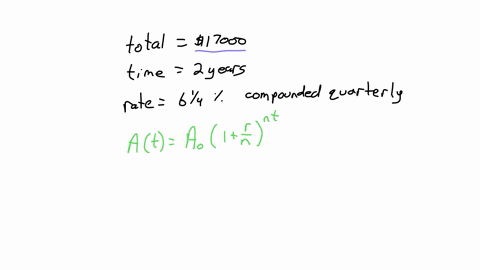 total = $17000
time = 2 years
rate = 6 1/4 % compounded quarterly
A(t) = A₀ (1 + r/n)^nt